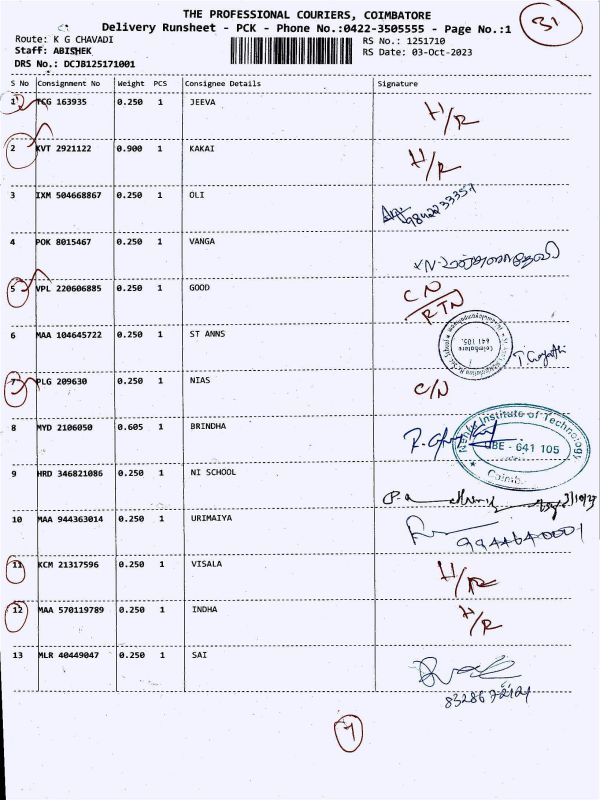 THE PROFESSIONAL COURIERS, COIMBATORE
31
Delivery Runsheet - PCK - Phone No.:0422-3505555 - Page No.:1
Route: K G CHAVADI
RS No.: 1251710
Staff: ABISHEK
RS Date: 03-Oct-2023
DRS No.: DCJB125171001
S No Consignment No Weight PCS Consignee Details Signature
1 TCG 163935 0.250 1 JEEVA H/R
2 KVT 2921122 0.900 1 KAKAI H/R
3 IXM 504668867 0.250 1 OLI
4 POK 8015467 0.250 1 VANGA
5 VPL 220606885 0.250 1 GOOD CN
RTN
6 MAA 104645722 0.250 1 ST ANNS
Coimbatore
641 105.
7 PLG 209630 0.250 1 NIAS C/N
8 MYD 2106050 0.605 1 BRINDHA
Institute of Technology
CBE - 641 105
9 HRD 346821086 0.250 1 NI SCHOOL
10 MAA 944363014 0.250 1 URIMAIYA
9944640001
11 KCM 21317596 0.250 1 VISALA H/R
12 MAA 570119789 0.250 1 INDHA H/R
13 MLR 40449047 0.250 1 SAI
7